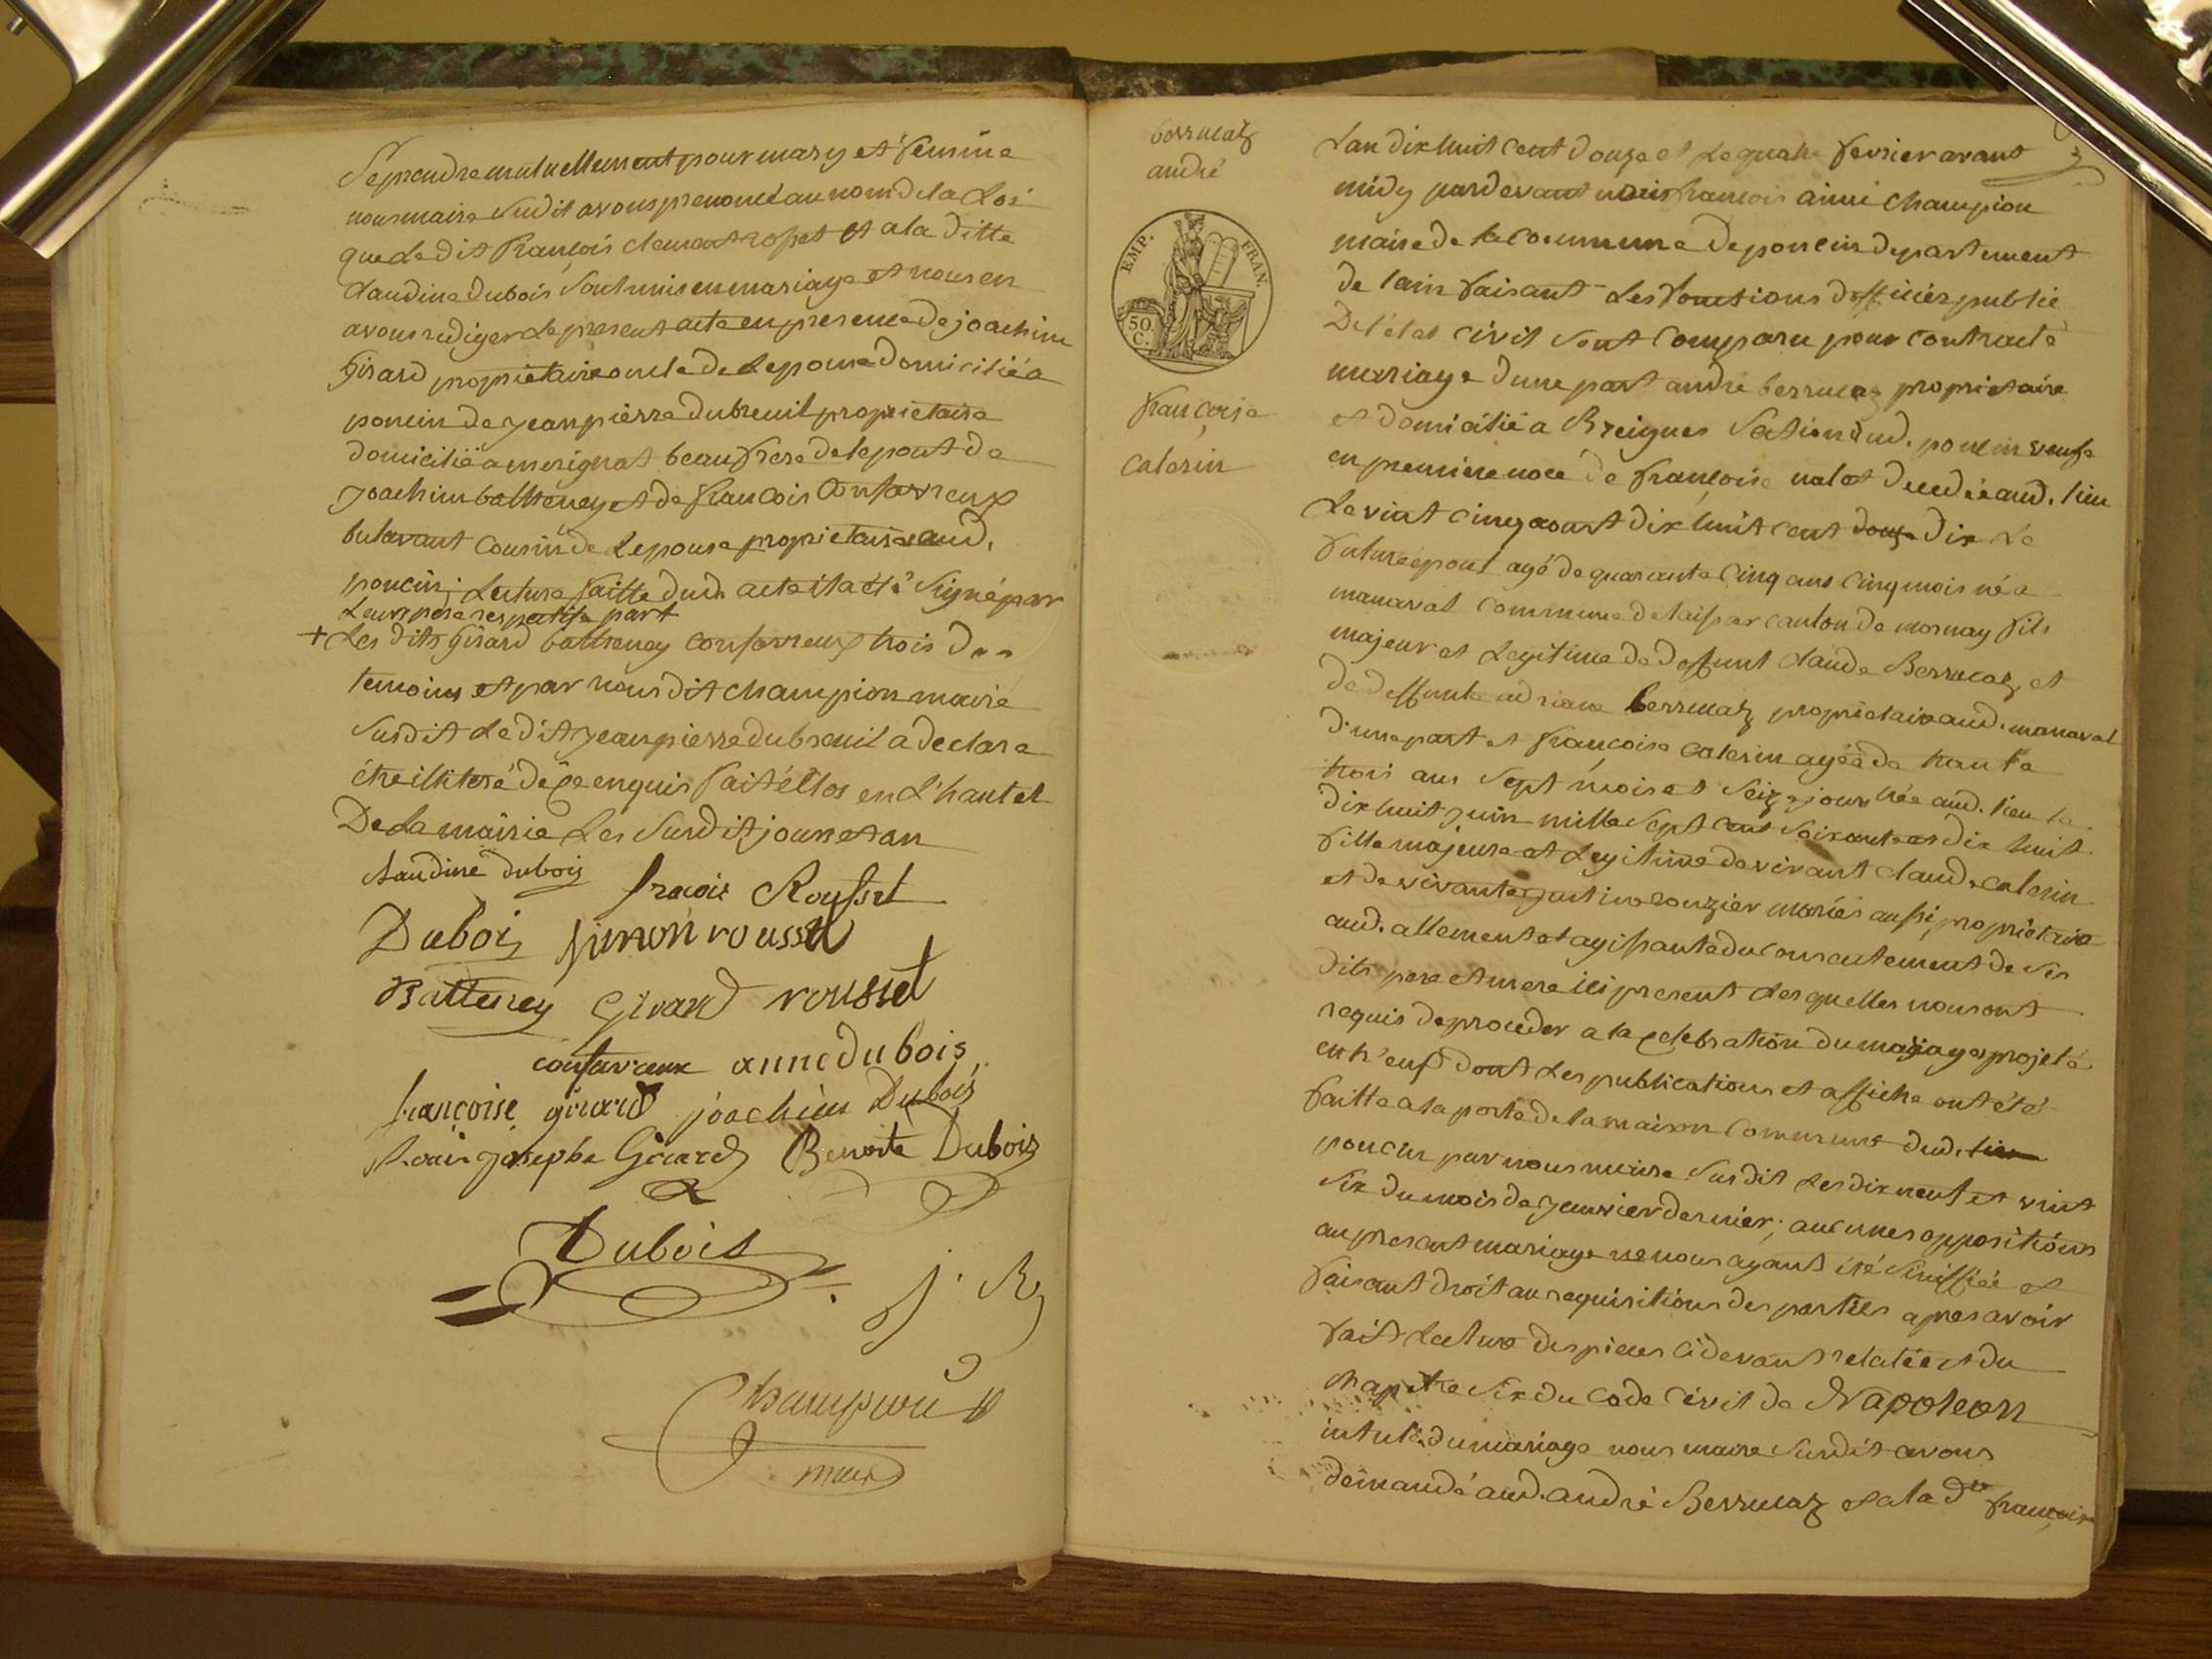 Se prendre mutuellement pour mary et femme
nous maire susdit avons prenoncé au nom de la Loi
que Le dit François clement rosset et a la ditte
claudine dubois sont unis en mariage et nous en
avons rediger Le present acte en presence de joachim
Girard proprietaire oncle de Lepouse domicilié a
poncin de jean pierre dubreuil proprietaire
domicilié a merignat beaufrere de lepout de
joachim battheney et de francois Confavreux
cousin de Lepouse proprietaire aud.
poncin; Lecture faitte dud. acte il a été Signé par
Leurs pere respectife part
+ Les dits girard battheney confavreux trois des
temoins et par nous dit champion maire
susdit Le dit jean pierre dubreuil a declare
être illiteré de ce enquis fait et clos en L'hautel
De La mairie Les susdit jour et an
claudine dubois
fracois Rousset
Dubois simon rousset
Batteney Girard rousset
confavreux anne dubois
françoise girard joachim Dubois
josephe Girard Benoite Dubois
Dubois
j. R
Champion
maire
berrucaz
andré
EMP. FRAN.
50. C.
françoise
caterin
Lan dix huit cent douze et Le quatre fevrier avant
midy pardevant nous francois aimé champion
maire de la commune de poncin departement
de lain faisant Les fonctions dofficier public
De l'etat civil sont comparu pour contracté
mariage dune part andré berrucaz proprietaire
et domicilié a Breignes Section dud. poncin veufe
en premiere noce de françoise nalet decedée aud. lieu
Le vint cinq aoust dix huit cent douze dix Le
futur epout agé de quarante cinq ans cinq mois né a
manaval commune de laissar canton de mornay fils
majeur et Legitime de deffunt claude Berrucaz et
de deffunte adriane berrucaz proprietaire aud. manaval
d'une part et françoise caterin agée de trante
trois ans sept mois et seize jours née aud. lieu le
dix huit juin mille sept cent soixante et dix huit
fille majeure et Legitime de vivant claude caterin
et de vivante justine rouzier mariés aussi proprietaire
aud. allement et agissante du consentement de ses
dits pere et mere ici present Lesquelles nous ont
requis de proceder a la celebration du mariage projeté
entr'eux dont Les publications et affiche ont été
faitte a la porte de la maison commune dud. lieu
poncin par nous maire susdit Les dix neuf et vint
six du mois de janvier dernier; aucunes oppositions
au present mariage ne nous ayant été siniffiée et
faisant droit au requisitions des parties apres avoir
fait Lecture des pieces cidevant relatée et du
chapitre six du code civil de Napoleon
intulé du mariage nous maire susdit avons
demandé aud. andré Berrucaz et a la dte françoise